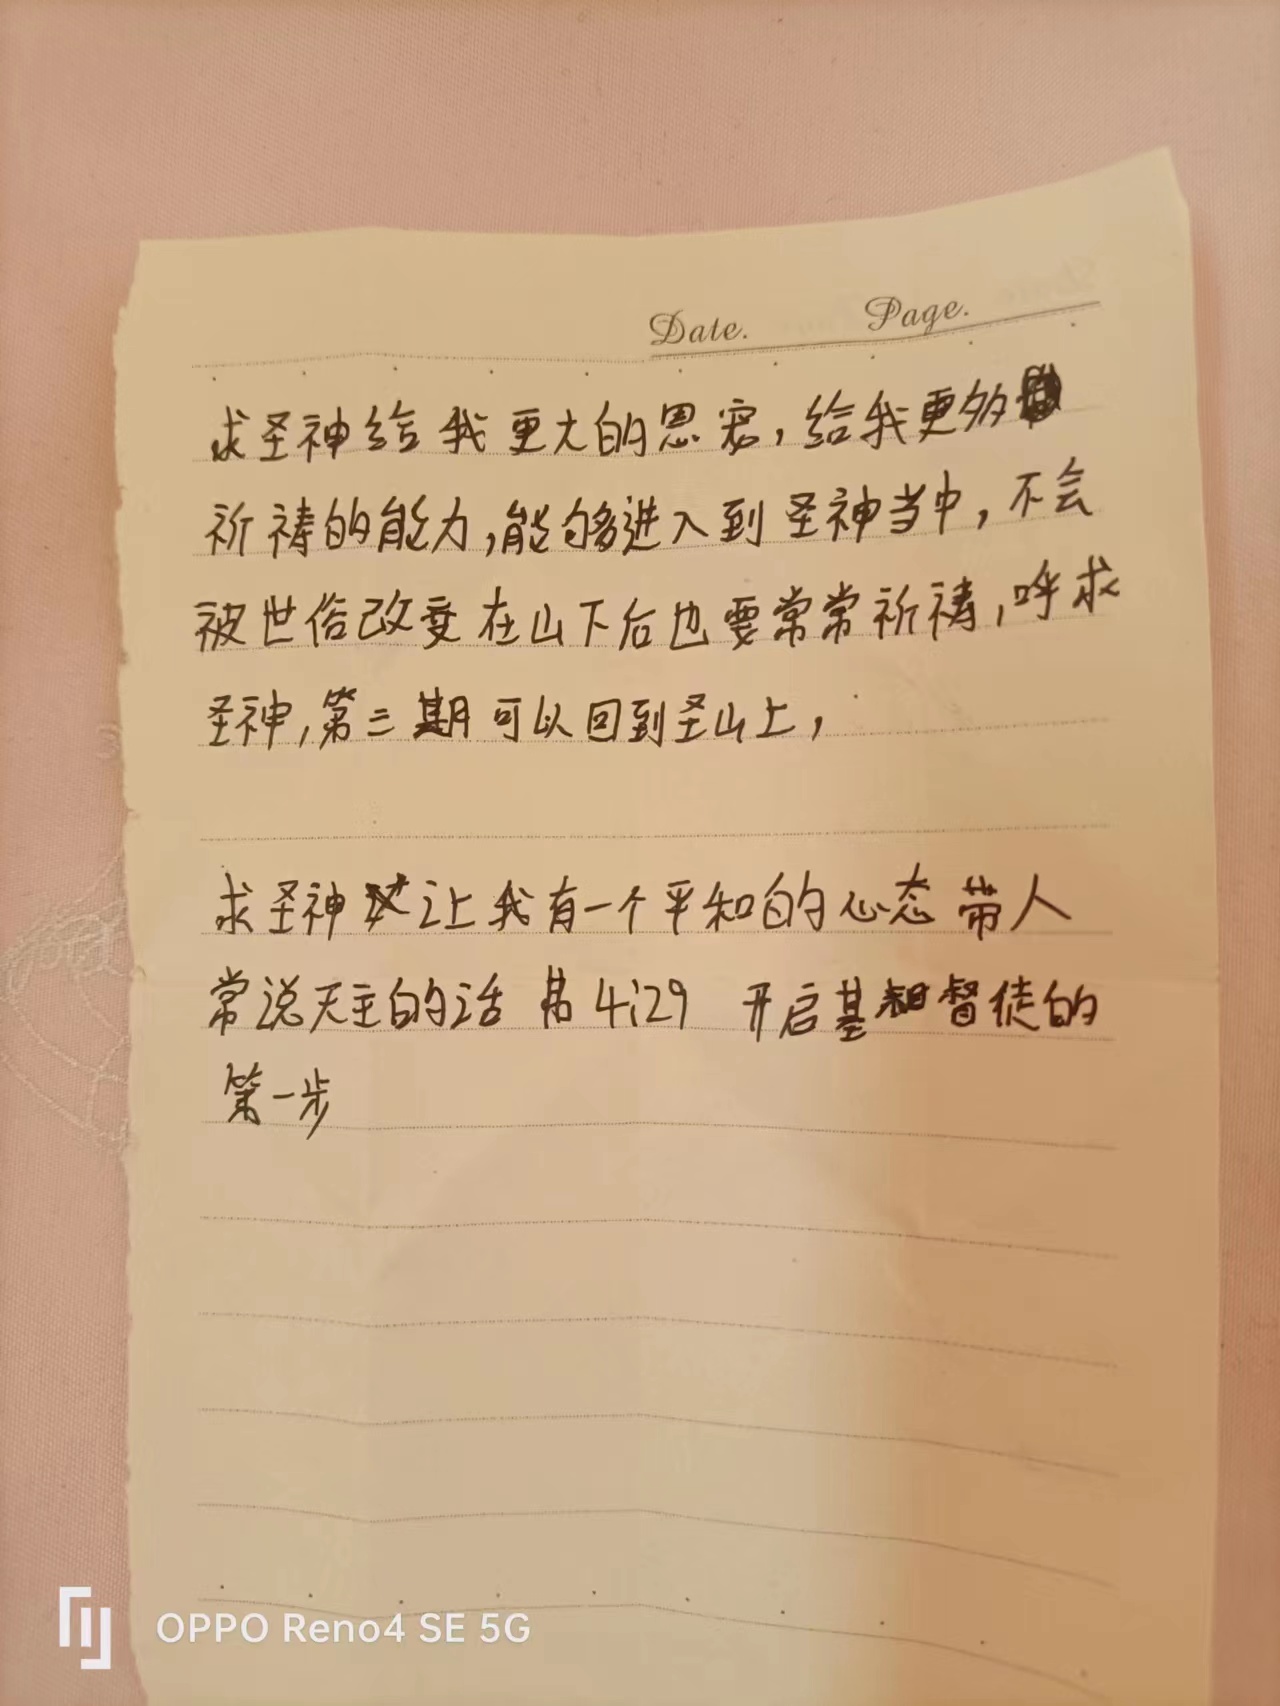 Date. Page.
求圣神给我更大的恩宠，给我更多
祈祷的能力，能够进入到圣神当中，不会
被世俗改变在山下后也要常常祈祷，呼求
圣神，第三期可以回到圣山上，
求圣神让我有一个平和的心态带人
常说天主的话 弗4:29 开启基督徒的
第一步
OPPO Reno4 SE 5G